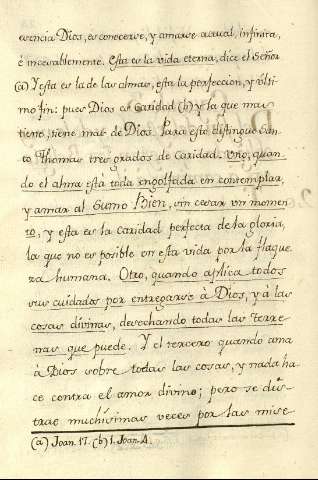 esencia Dios, es conocerse, y amarse actual, infinita,
é incesablemente. Esta es la vida eterna, dice el Señor
(a) Y esta es la de las almas, esta la perfeccion, y últi-
mo fin: pues Dios es Caridad (b) y la que mas
tiene, tiene mas de Dios. Para esta distingue San-
to Thomas tres grados de Caridad. Uno, quan-
do el alma está toda engolfada en contemplar,
y amar al Sumo Bien, sin cesar un momen
to, y esta es la Caridad perfecta de la gloria,
la que no es posible en esta vida por la flaque
za humana. Otro, quando aplica todos
sus cuidados por entregarse à Dios, y à las
cosas divinas, desechando todas las terre
nas que puede. Y el tercero quando ama
à Dios sobre todas las cosas, y nada ha
ce contra el amor divino; pero se dis
trae muchísimas veces por las mise
(a) Joan. 17. (b) 1. Joan. 4.